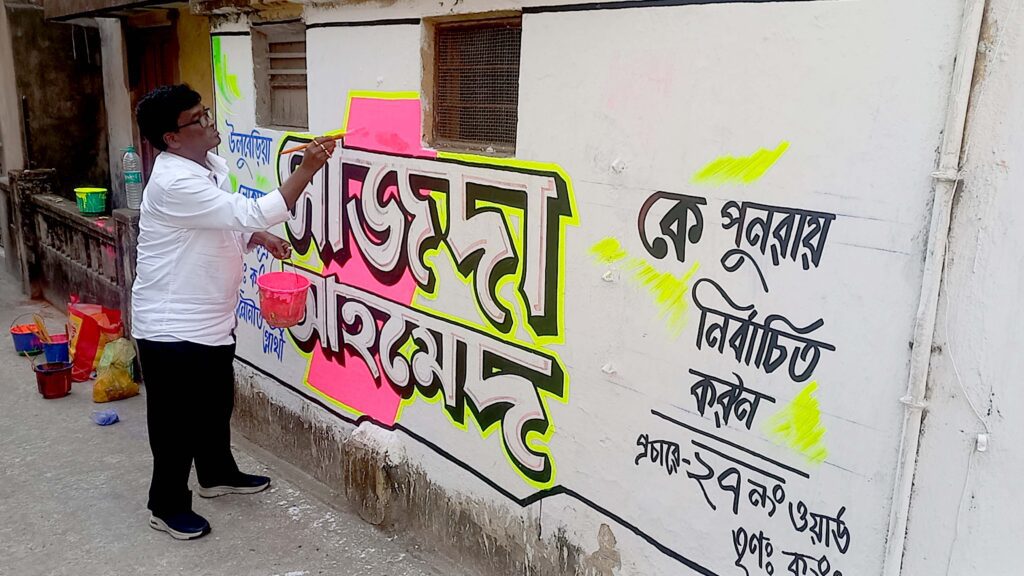 উলুবেড়িয়া
সাজদা
আহমেদ
প্রার্থী
কে পুনরায়
নির্বাচিত
করুন
প্রচারে-২৭ নং ওয়ার্ড
তৃণঃ কং